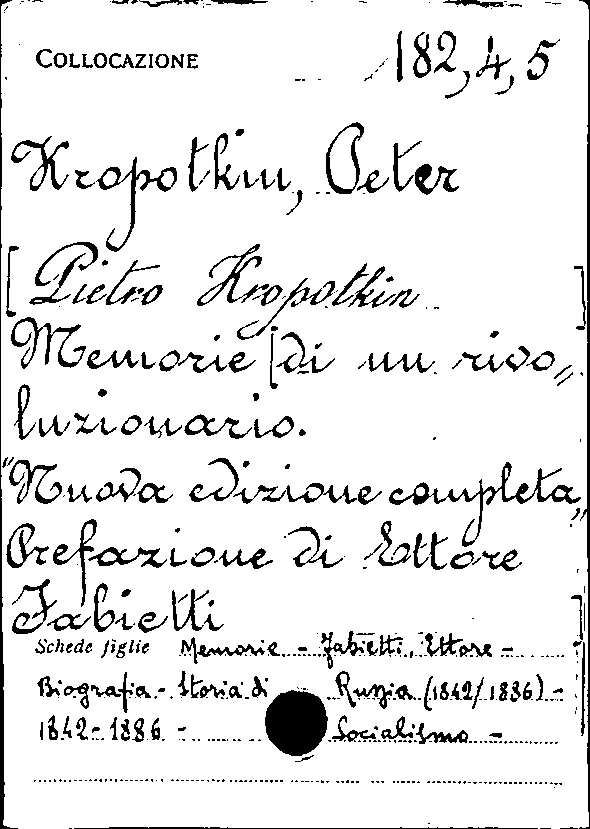 COLLOCAZIONE 182,4,5
Kropotkin, Peter
[Pietro Kropotkin]
Memorie [di un rivo„
luzionario.
"Nuova edizione completa„
Prefazione di Ettore
Fabietti]
Schede figlie Memorie - Fabietti, Ettore -
Biografia - Storia di Russia (1842/1886) -
1842-1886 - Socialismo -